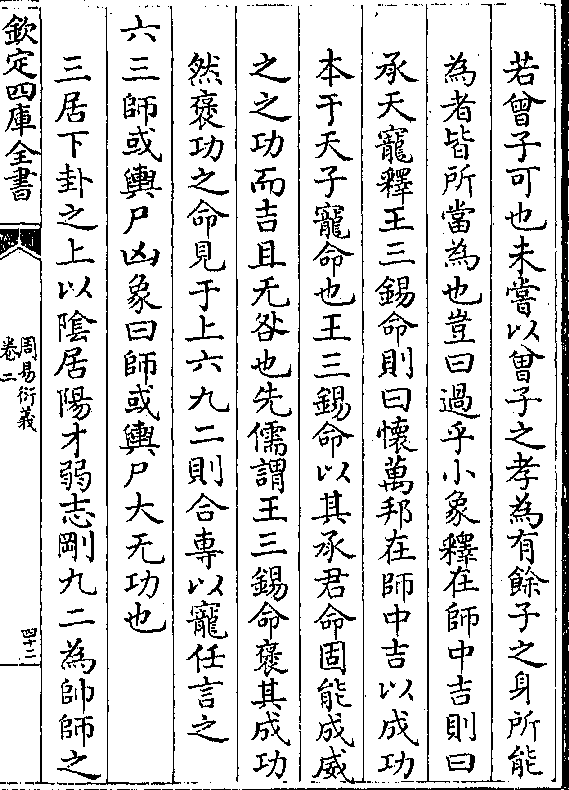 若曾子可也未嘗以曾子之孝為有餘子之身所能
為者皆所當為也豈曰過乎小象釋在師中吉則曰
承天寵釋王三錫命則曰懷萬邦在師中吉以成功
本于天子寵命也王三錫命以其承君命固能成威
之之功而吉且无咎也先儒謂王三錫命褒其成功
然褒功之命見于上六九二則合專以寵任言之
六三師或輿尸凶象曰師或輿尸大无功也
三居下卦之上以陰居陽才弱志剛九二為帥師之
欽定四庫全書
周易衍義
卷二
四十二